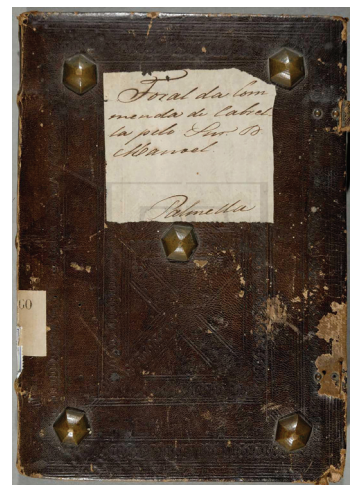 Foral da Com
menda de Cabel
la pelo Snr. D.
Manoel
Palmella
GO